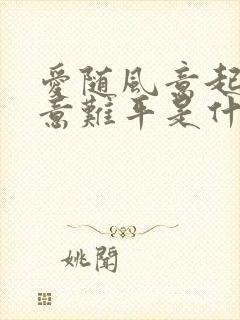 愛随風意起
意難平是什
姚聞